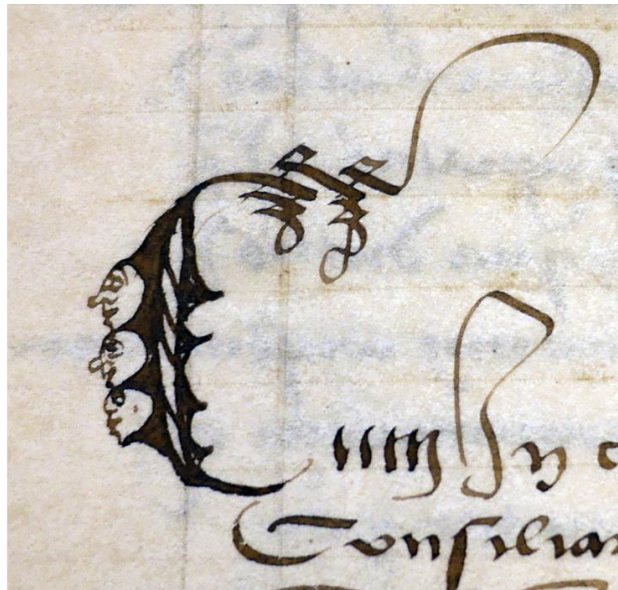 Cum In c
Consiliar